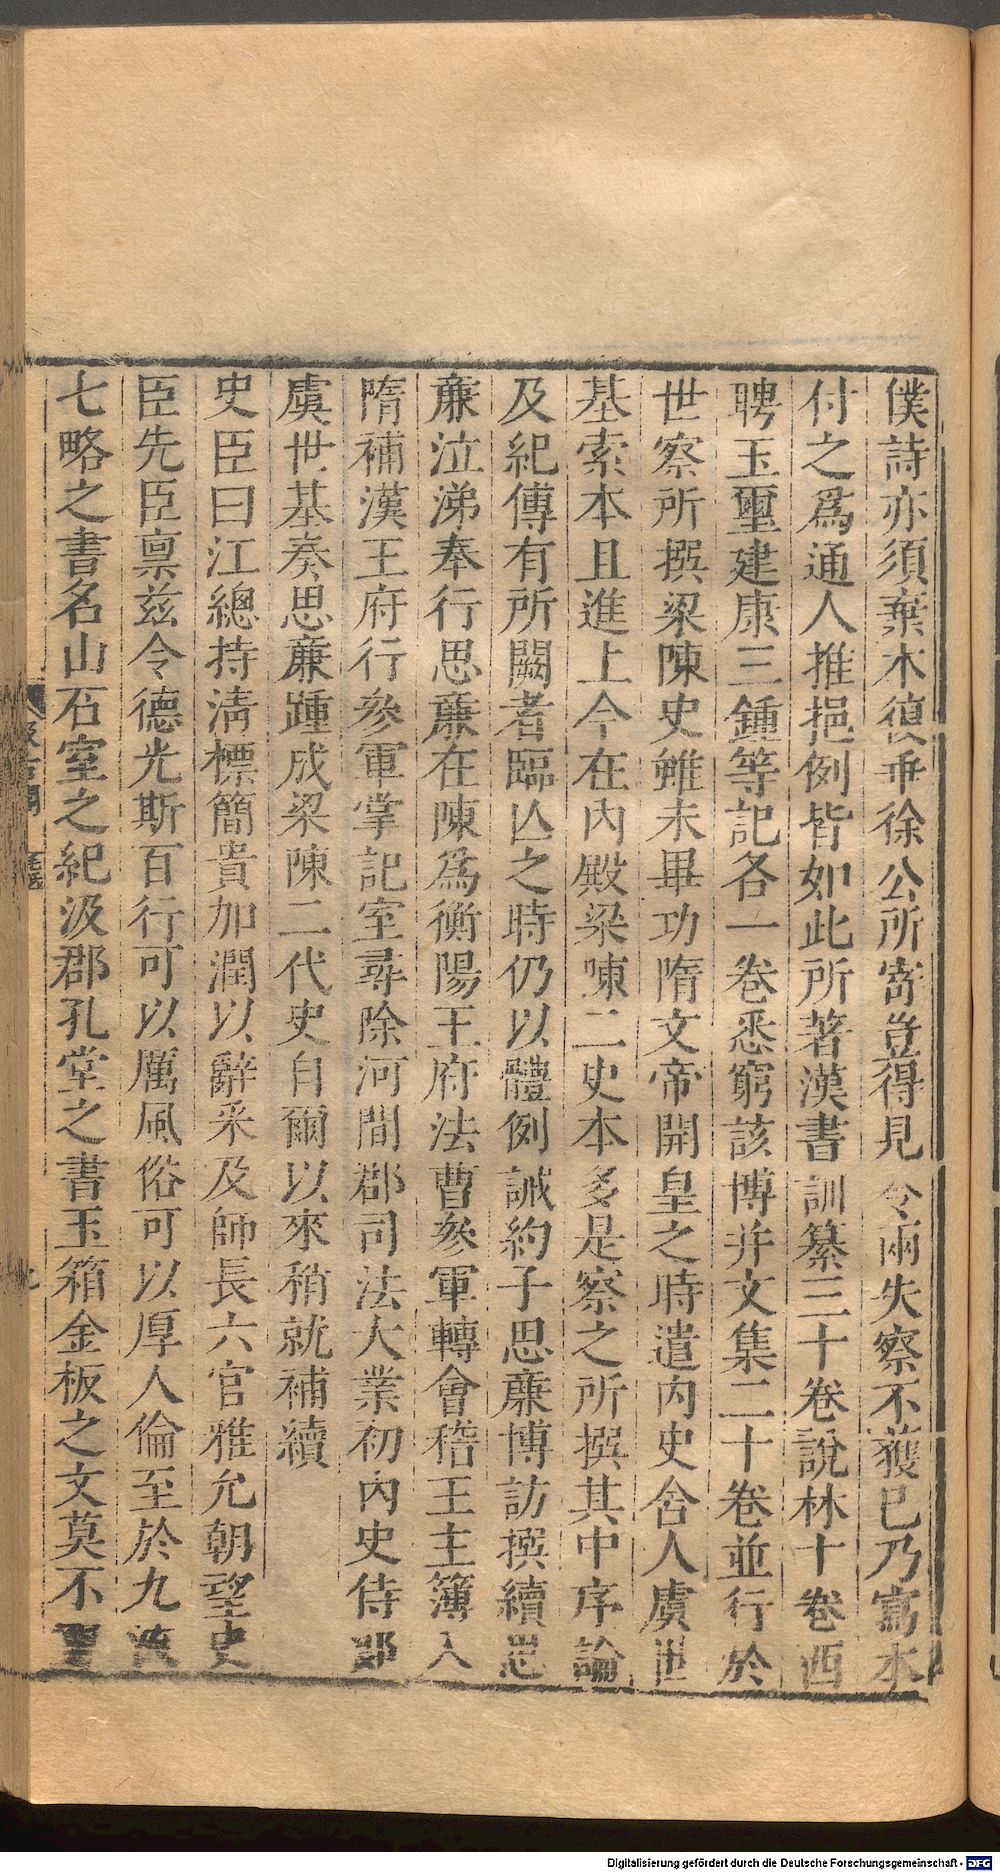 僕詩亦須棄本復乖徐公所寄豈得見令兩失察不獲已乃寫本
付之爲通人推挹例皆如此所著漢書訓纂三十卷說林十卷西
聘玉璽建康三鍾等記各一卷悉窮該博并文集二十卷並行於
世察所撰梁陳史雖未畢功隋文帝開皇之時遣内史舍人虞世
基索本且進上今在内殿梁陳二史本多是察之所撰其中序論
及紀傳有所闕者臨亾之時仍以體例誡約子思廉博訪撰續思
廉泣涕奉行思廉在陳爲衡陽王府法曹參軍轉會稽王主簿入
隋補漢王府行參軍掌記室尋除河間郡司法大業初内史侍郎
虞世基奏思廉踵成梁陳二代史自爾以來稍就補續
史臣曰江總持清標簡貴加潤以辭采及師長六官雅允朝望史
臣先臣禀兹令德光斯百行可以厲風俗可以厚人倫至於九流
七略之書名山石室之紀汲郡孔堂之書玉箱金板之文莫不
Digitalisierung gefördert durch die Deutsche Forschungsgemeinschaft - DFG